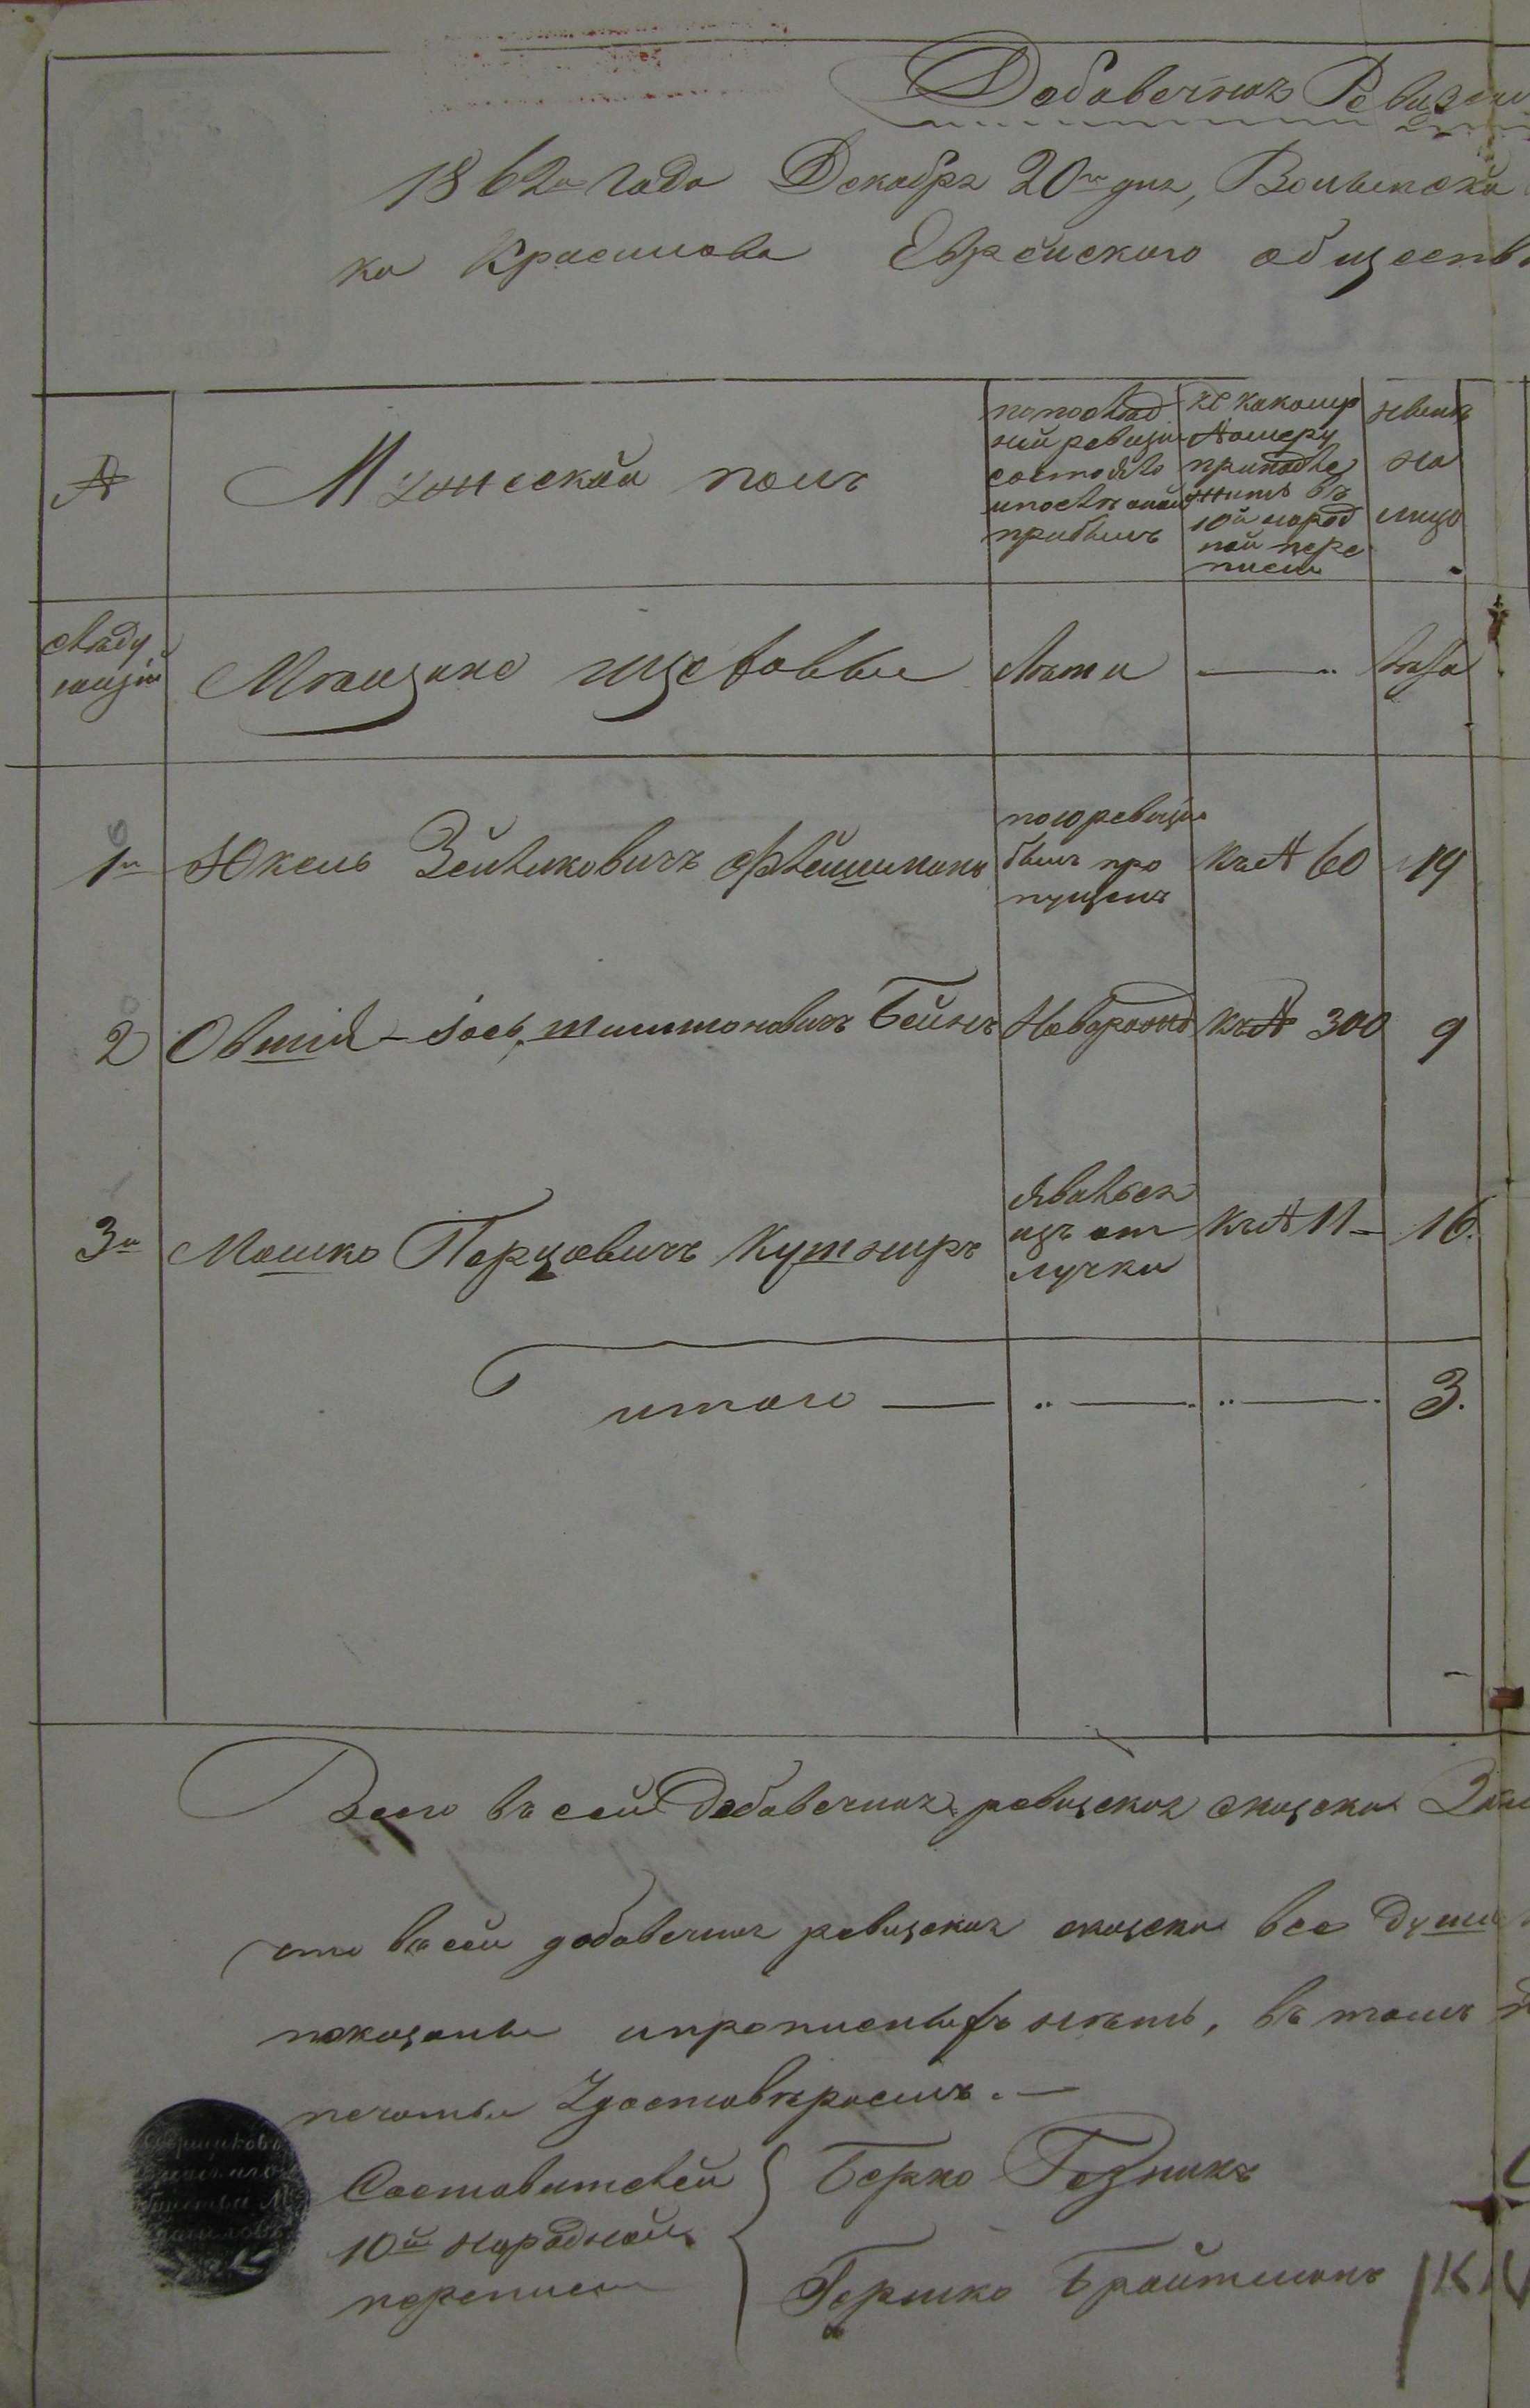 Добавочная Ревизск
1862го Года Декабря 20го дня, Волынска
ка Красилова Еврейского обществ
№
Мужеский полъ
по послѣд
ней ревизіи
состояло
и послѣ оной
прибылъ
къ какому
Номеру
принадле
житъ въ
10й народ
ной пере
писи
нынѣ
на
лицо
слѣду
ющій
Мѣщане
лѣта
лѣта
1й
Юкель Зейликовичъ Флейшманъ
по 10 ревизіи
былъ про
пущенъ
къ № 60
19
2
Овшій-Іось Шимоновичъ Бейнъ
Новорожд
къ № 300
9
3й
Мошко Перцовичъ Кушниръ
явился
изъ от
лучки
къ № 11
16.
итого
3.
Всего въ сей Добавочная ревизская сказска
что въ сей добавочная ревизская сказска все души
показаны и прописныхъ нѣтъ, въ томъ
печатью Удостовѣряемъ.
Составителей
10й народной
переписи
Берко Резникъ
Гершко Бройтманъ